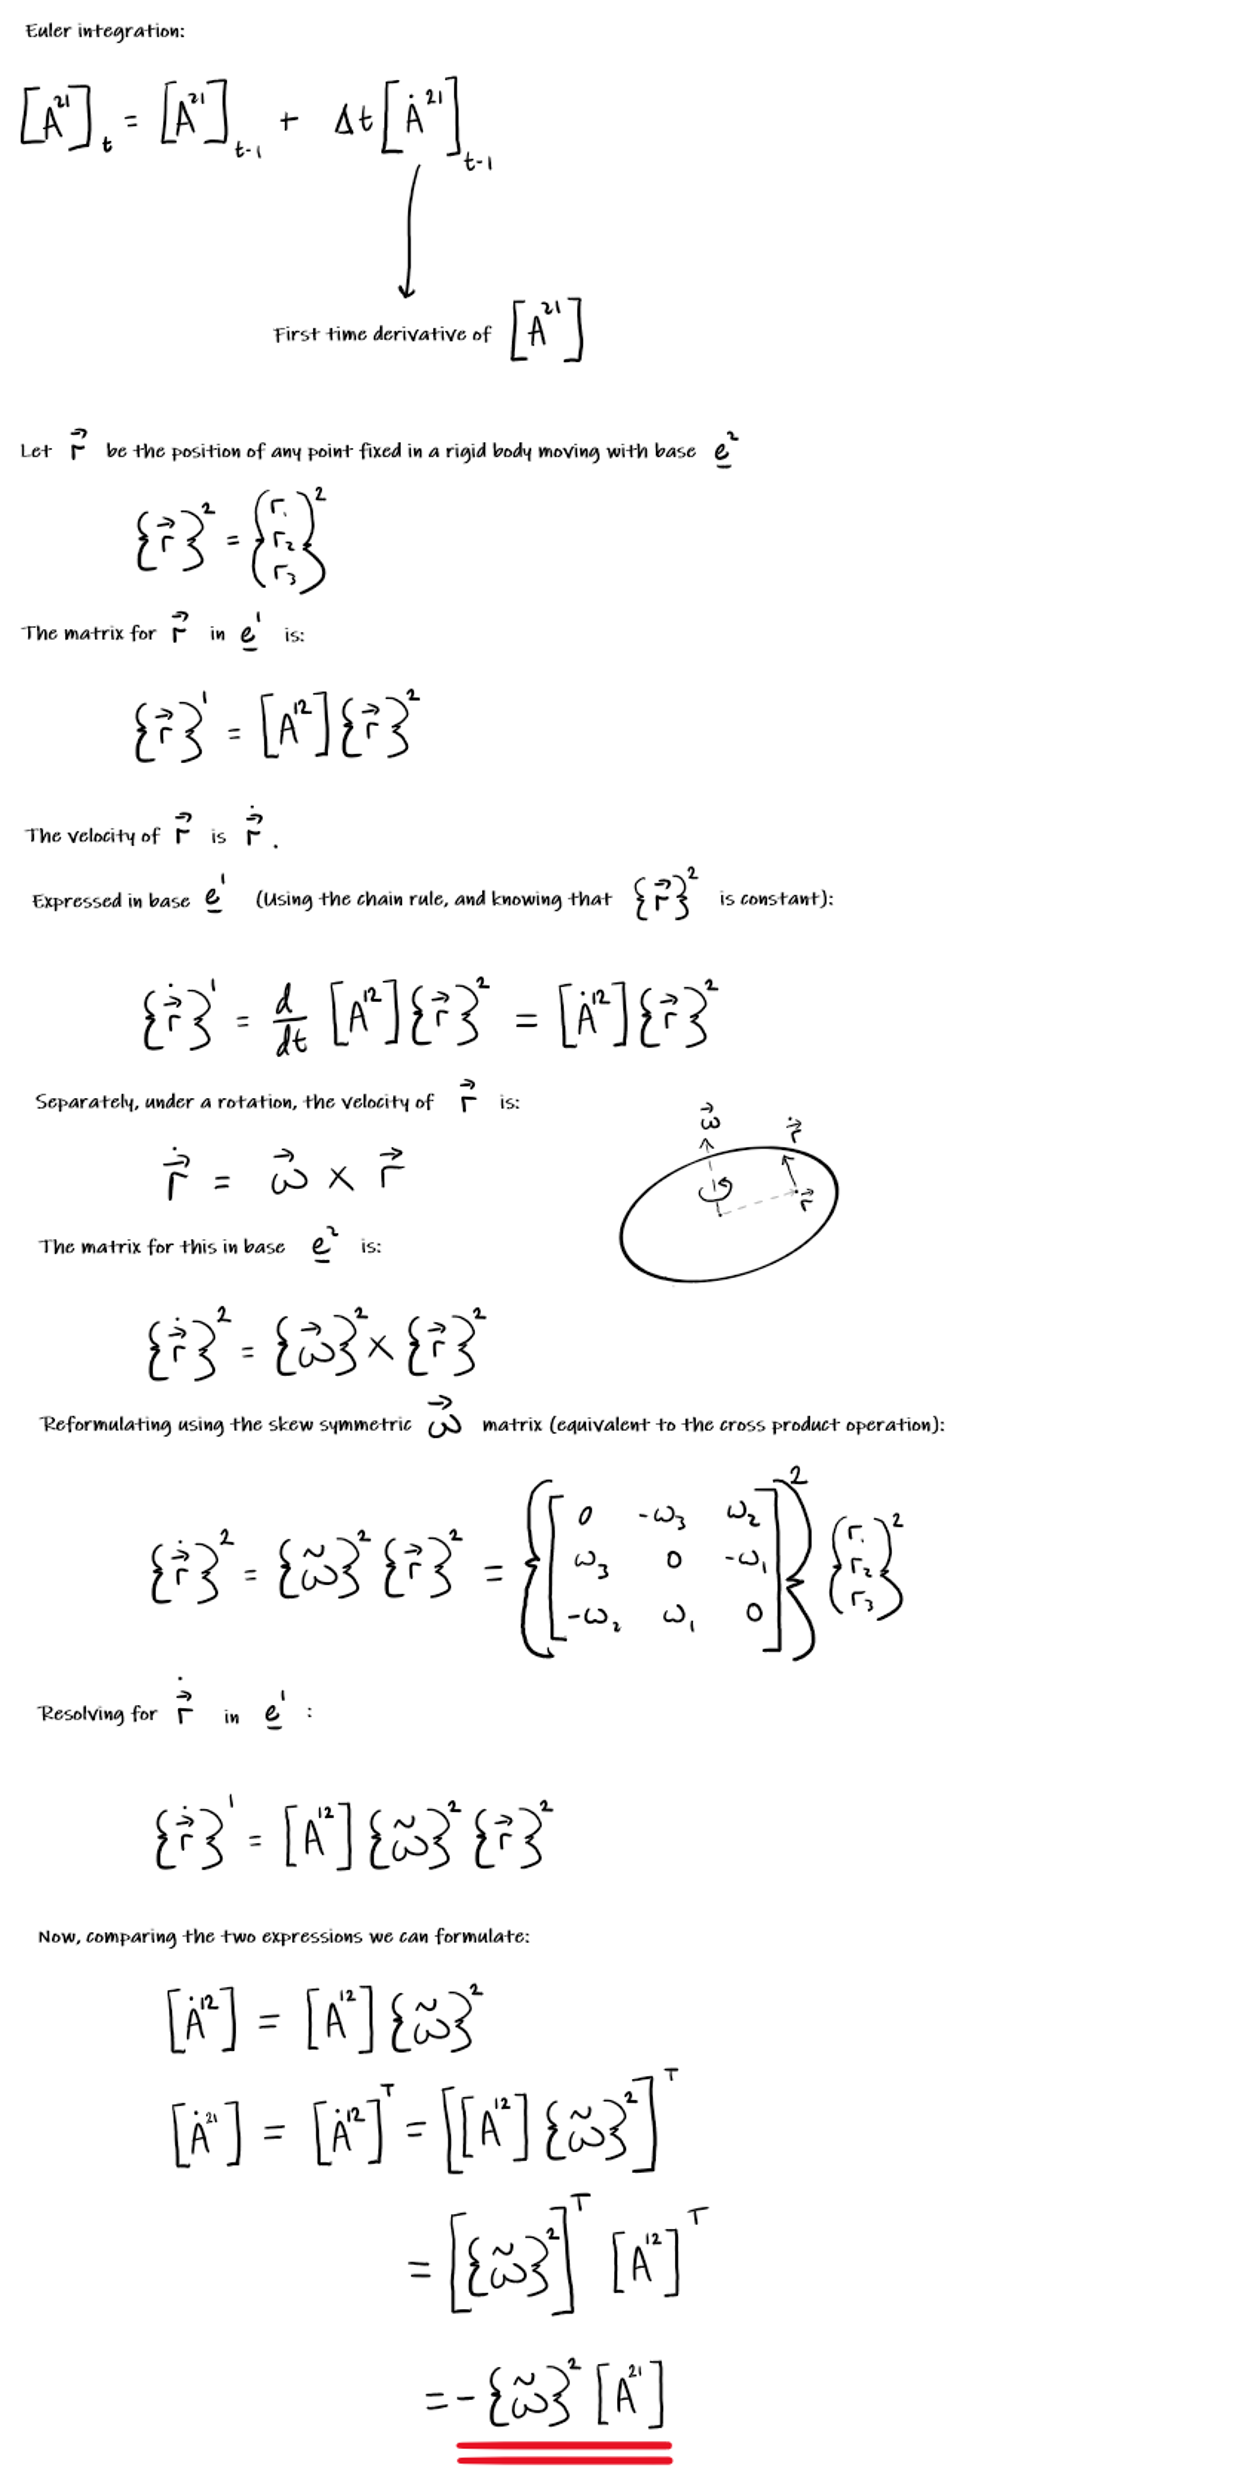 Euler integration:
[A²¹]ₜ = [A²¹]ₜ₋₁ + Δt[Ȧ²¹]ₜ₋₁
First time derivative of [A²¹]
Let r⃗ be the position of any point fixed in a rigid body moving with base e̲²
{r⃗}² = {r₁ r₂ r₃}²
The matrix for r⃗ in e̲¹ is:
{r⃗}¹ = [A¹²]{r⃗}²
The velocity of r⃗ is r⃗̇.
Expressed in base e̲¹ (Using the chain rule, and knowing that {r⃗}² is constant):
{r⃗̇}¹ = d/dt [A¹²]{r⃗}² = [Ȧ¹²]{r⃗}²
Separately, under a rotation, the velocity of r⃗ is:
ω⃗ r⃗̇
r⃗̇ = ω⃗ × r⃗
r⃗
The matrix for this in base e̲² is:
{r⃗̇}² = {ω⃗}² × {r⃗}²
Reformulating using the skew symmetric ω⃗ matrix (equivalent to the cross product operation):
{r⃗̇}² = {ω̃}²{r⃗}² = {[0 -ω₃ ω₂
ω₃ 0 -ω₁
-ω₂ ω₁ 0]}² {r₁ r₂ r₃}²
Resolving for r⃗̇ in e̲¹ :
{r⃗̇}¹ = [A¹²]{ω̃}²{r⃗}²
Now, comparing the two expressions we can formulate:
[Ȧ¹²] = [A¹²]{ω̃}²
[Ȧ²¹] = [Ȧ¹²]ᵀ = [[A¹²]{ω̃}²]ᵀ
= [{ω̃}²]ᵀ [A¹²]ᵀ
= -{ω̃}²[A²¹]